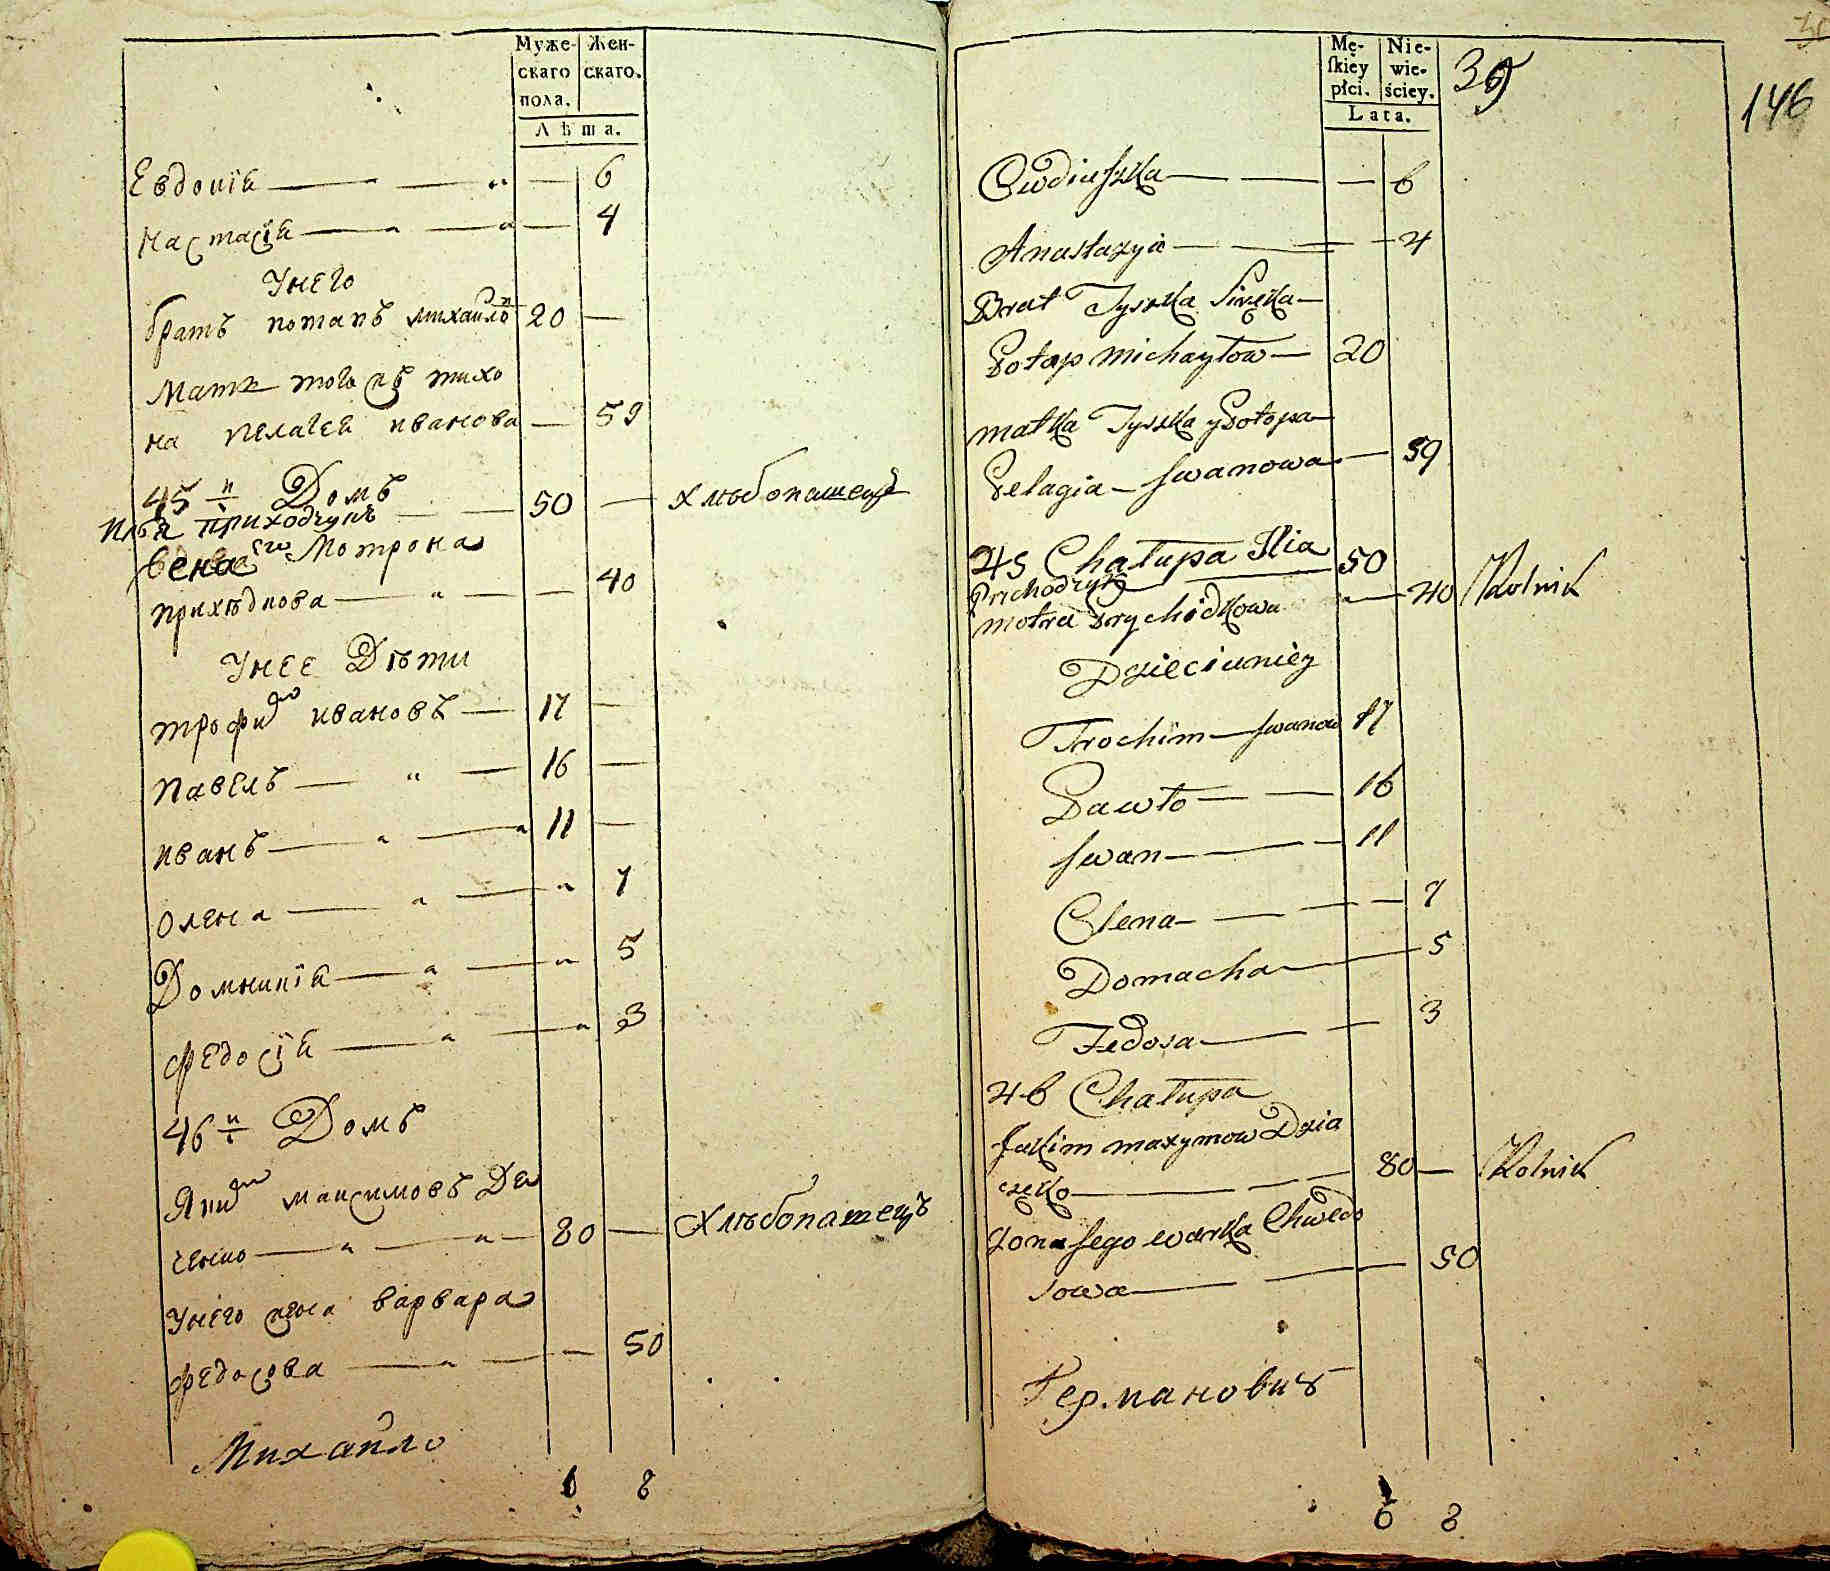 Муже-
скаго
пола.
Жен-
скаго.
Лѣта.
Евдокїя — 6
Настасїя — 4
У него
братъ потапъ михайло 20 —
Мать того тихо
на пелагея иванова — 59
45 Домъ
Илья приходчукъ — 50 — хлѣбопашецъ
Жена его Мотрона
прихѣдкова — 40
У нее Дѣти
трофим ивановъ — 17 —
павелъ — 16 —
иванъ — 11 —
олена — 7
Домникїя — 5
федосїя — 3
46 Домъ
Яким максимовъ Дя
ченко — 80 — хлѣбопашецъ
У него жена варвара
федосова — 50
Михайло
6 8
Mę-
ſkiey
płci.
Nie-
wie-
ściey.
Lata.
39
146
Owdiuszka — 6
Anastazyia — 4
Brat Tyszka
Potap michayłow — 20
matka Tyszka y Potopa
Pelagia Iwanowa — 59
45 Chałupa Ilia 50
Prichodzyk
motra Prychidkowa — 40 Rolnik
Dzieci u niey
Trochim Iwanow 17
Pawło — 16
Iwan — 11
Olena — 7
Domacha — 5
Fedosa — 3
46 Chałupa
Jakim maxymow Dzia
częko — 80 — Rolnik
żona jego warka Chwedo
sowa — 50
Германовичъ
6 8